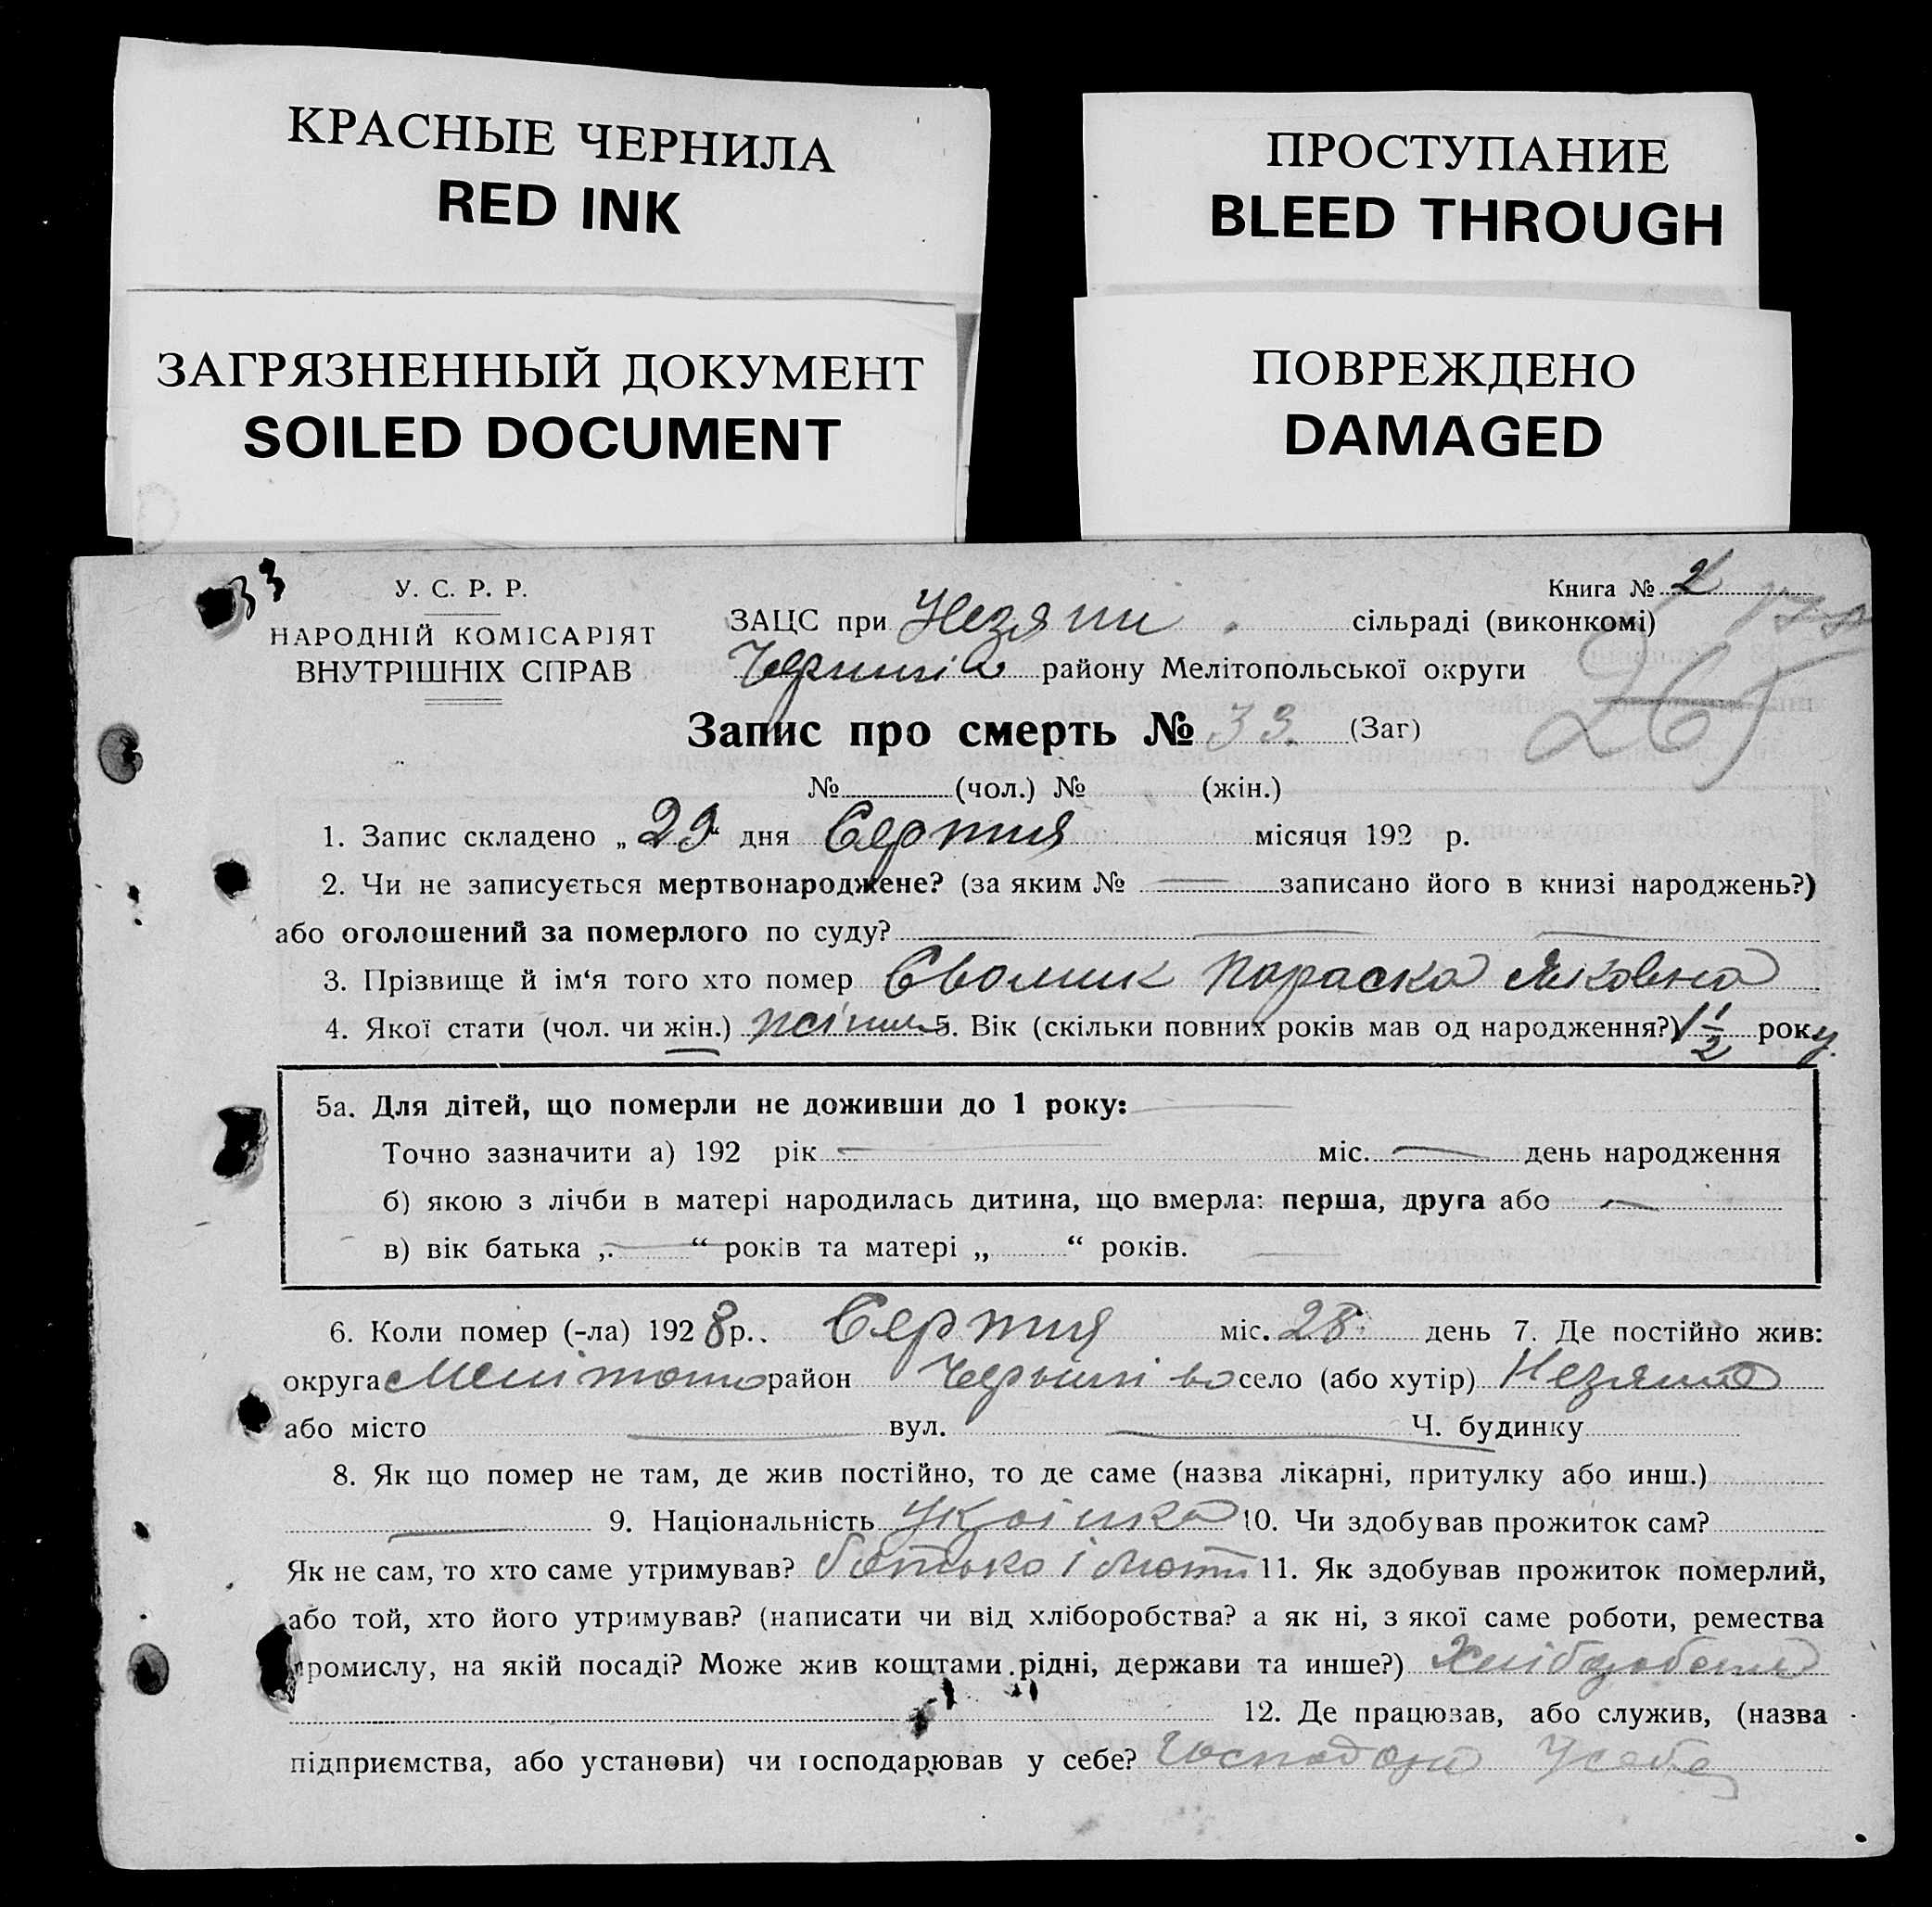 КРАСНЫЕ ЧЕРНИЛА
RED INK
ПРОСТУПАНИЕ
BLEED THROUGH
ЗАГРЯЗНЕННЫЙ ДОКУМЕНТ
SOILED DOCUMENT
ПОВРЕЖДЕНО
DAMAGED
33
У. С. Р. Р.
НАРОДНІЙ КОМІСАРІЯТ
ВНУТРІШНІХ СПРАВ
Книга № 2
ЗАЦС при сільраді (виконкомі)
району Мелітопольської округи
265
Запис про смерть № 33. (Заг)
№ (чол.) № (жін.)
1. Запис складено „ 29 дня Серпня місяця 192 р.
2. Чи не записується мертвонароджене? (за яким № — записано його в книзі народжень?)
або оголошений за померлого по суду? — — —
3. Прізвище й ім‘я того хто помер Параска Яковна
4. Якої стати (чол. чи жін.) 5. Вік (скільки повних років мав од народження?) 1 1/2 року.
5а. Для дітей, що померли не доживши до 1 року: —
Точно зазначити а) 192 рік — міс. — день народження
б) якою з лічби в матері народилась дитина, що вмерла: перша, друга або —
в) вік батька „ — “ років та матері „ “ років.
6. Коли помер (-ла) 1928 р.. Серпня міс. 28 день 7. Де постійно жив:
округа район село (або хутір)
або місто — вул. — Ч. будинку
8. Як що помер не там, де жив постійно, то де саме (назва лікарні, притулку або инш.)
— 9. Національність 10. Чи здобував прожиток сам?
Як не сам, то хто саме утримував? батько і мати 11. Як здобував прожиток померлий,
або той, хто його утримував? (написати чи від хліборобства? а як ні, з якої саме роботи, ремества
промислу, на якій посаді? Може жив коштами рідні, держави та инше?)
12. Де працював, або служив, (назва
підприємства, або установи) чи господарював у себе? Усебе